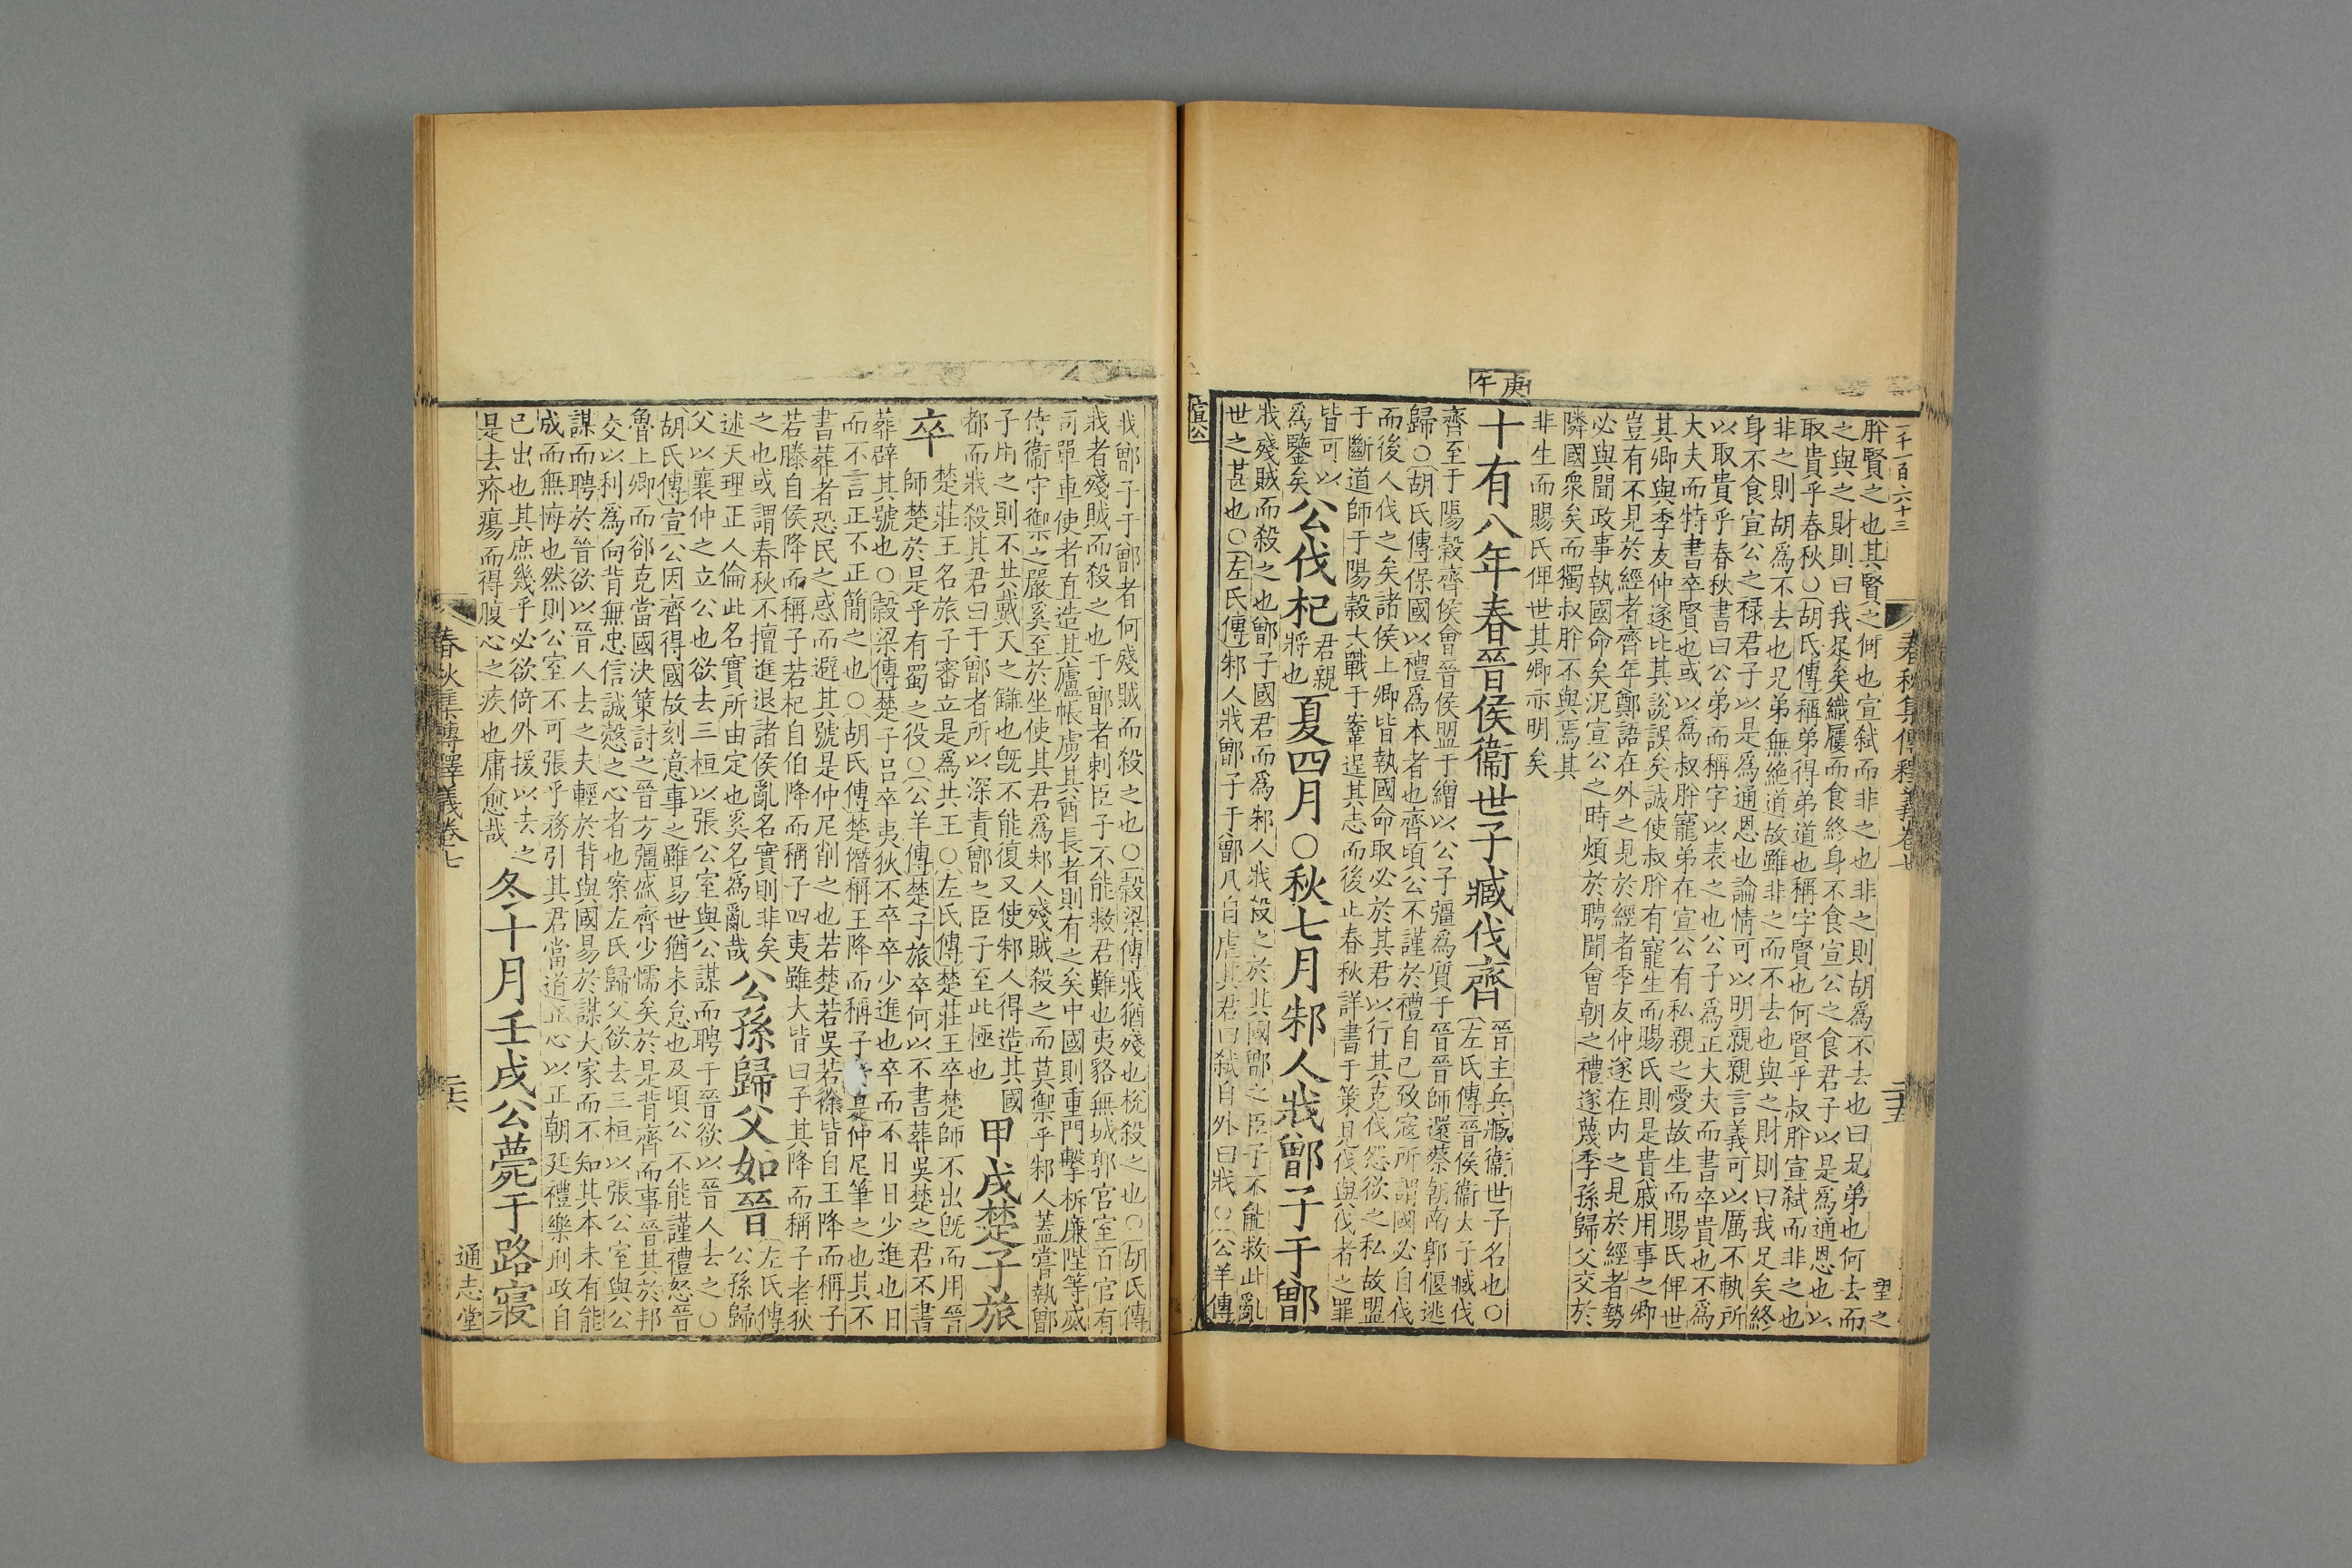 一千一百六十三
春秋集傳釋義卷七
二十五
望之
肸賢之也其賢之何也宣弒而非之也非之則胡爲不去也曰兄弟也何去而
之與之財則曰我足矣織屨而食終身不食宣公之食君子以是爲通恩也以
取貴乎春秋○胡氏傳稱弟得弟道也稱字賢也何賢乎叔肸宣弒而非之也
非之則胡爲不去也兄弟無絶道故雖非之而不去也與之財則曰我足矣終
身不食宣公之禄君子以是爲通恩也論情可以明親親言義可以厲不軌所
以取貴乎春秋書曰公弟而稱字以表之也公子爲正大夫而書卒貴也不爲
大夫而特書卒賢也或以爲叔肸寵弟在宣公有私親之愛故生而賜氏俾世
其卿與季友仲遂比其說誤矣誠使叔肸有寵生而賜氏則是貴戚用事之卿
豈有不見於經者齊年鄭語在外之見於經者季友仲遂在内之見於經者勢
必與聞政事執國命矣况宣公之時煩於聘聞會朝之禮遂蔑季孫歸父交於
隣國衆矣而獨叔肸不與焉其
非生而賜氏俾世其卿亦明矣
庚午
十有八年春晉侯衞世子臧伐齊
晉主兵臧衞世子名也○
左氏傳晉侯衞大子臧伐
齊至于陽穀齊侯會晉侯盟于繒以公子彊爲質于晉晉師還蔡朝南郭偃逃
歸○胡氏傳保國以禮爲本者也齊頃公不謹於禮自已致寇所謂國必自伐
而後人伐之矣諸侯上卿皆執國命取必於其君以行其克伐怨欲之私故盟
于斷道師于陽穀大戰于鞌逞其志而後止春秋詳書于策見伐與伐者之罪
皆可以
爲鑒矣
公伐杞
君親
將也
夏四月○秋七月邾人戕鄫子于鄫
戕殘賊而殺之也鄫子國君而爲邾人戕殺之於其國鄫之臣子不能救此亂
世之甚也○左氏傳邾人戕鄫子于鄫凡自虐其君曰弒自外曰戕○公羊傳
宣公
戕鄫子于鄫者何殘賊而殺之也○穀梁傳戕猶殘也梲殺之也○胡氏傳
戕者殘賊而殺之也于鄫者刺臣子不能救君難也夷貉無城郭宮室百官有
司單車使者直造其廬帳虜其酋長者則有之矣中國則重門擊柝廉陛等威
侍衞守禦之嚴奚至於坐使其君爲邾人殘賊殺之而莫禦乎邾人葢嘗執鄫
子用之則不共戴天之讎也旣不能復又使邾人得造其國
都而戕殺其君曰于鄫者所以深責鄫之臣子至此極也
甲戌楚子旅
卒
楚莊王名旅子審立是爲共王○左氏傳楚莊王卒楚師不出旣而用晉
師楚於是乎有蜀之役○公羊傳楚子旅卒何以不書葬吳楚之君不書
葬辟其號也○穀梁傳楚子呂卒夷狄不卒卒少進也卒而不日日少進也日
而不言正不正簡之也○胡氏傳楚僭稱王降而稱子是仲尼筆之也其不
書葬者恐民之惑而避其號是仲尼削之也若楚若吳若徐皆自王降而稱子
若滕自侯降而稱子若杞自伯降而稱子四夷雖大皆曰子其降而稱子者狄
之也或謂春秋不擅進退諸侯亂名實則非矣
述天理正人倫此名實所由定也奚名爲亂哉
公孫歸父如晉
左氏傳
公孫歸
父以襄仲之立公也欲去三桓以張公室與公謀而聘于晉欲以晉人去之○
胡氏傳宣公因齊得國故刻意事之雖易世猶未怠也及頃公不能謹禮怒晉
魯上卿而郤克當國決策討之晉方彊盛齊少懦矣於是背齊而事晉其於邦
交以利爲向背無忠信誠慤之心者也案左氏歸父欲去三桓以張公室與公
謀而聘於晉欲以晉人去之夫輕於背與國易於謀大家而不知其本未有能
成而無悔也然則公室不可張乎務引其君當道正心以正朝廷禮樂刑政自
已出也其庶幾乎必欲倚外援以去之
是去疥瘍而得腹心之疾也庸愈哉
冬十月壬戌公薨于路寢
春秋集傳釋義卷七
二十六
通志堂